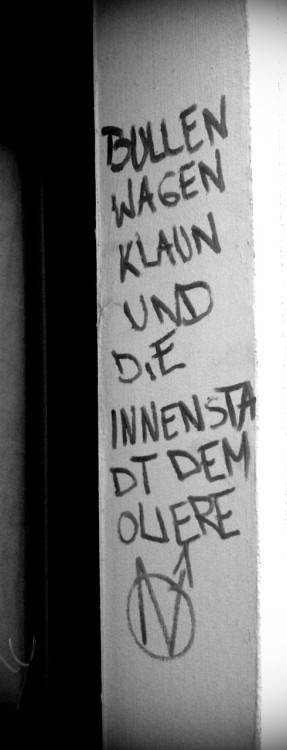 BULLEN
WAGEN
KLAUN
UND
DIE
INNENSTA
DT DEM
OLIERE
N